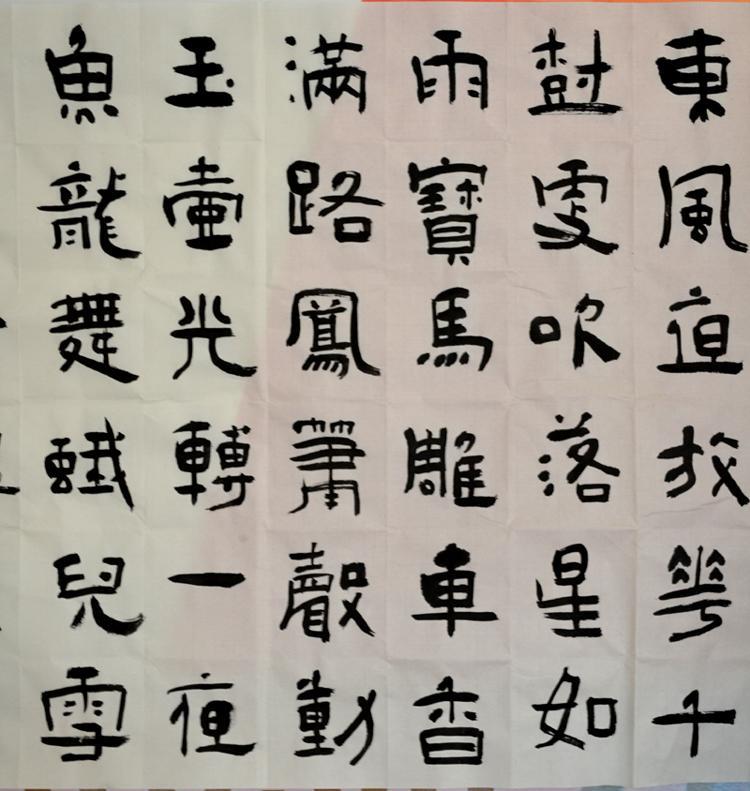 東風夜放花千
樹更吹落星如
雨寶馬雕車香
滿路鳳簫聲動
玉壺光轉一夜
魚龍舞蛾兒雪